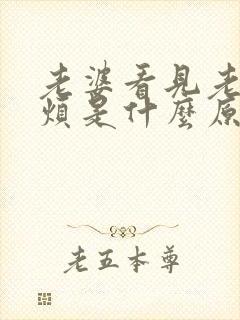 老婆看見老
煩是什麼原
老五本尊